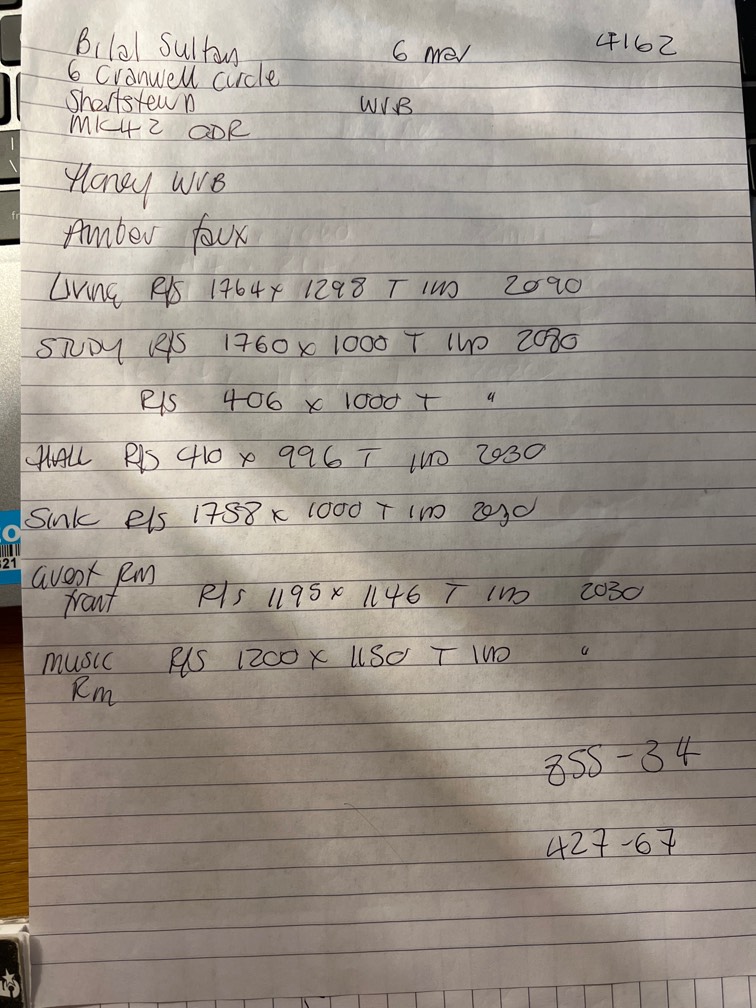 Bilal Sultan 6 mar 4162
6 Cranwell circle
Shortstown WVB
MK42 0DR
Honey WVB
Amber faux
Living R/S 1764 x 1298 T IND 2090
STUDY R/S 1760 x 1000 T IND 2080
R/S 406 x 1000 T "
HALL R/S 410 x 996 T IND 2030
Sink R/S 1758 x 1000 T IND 2030
Guest RM
front R/S 1195 x 1146 T IND 2030
music R/S 1200 x 1150 T IND "
Rm
855-34
427-67
21